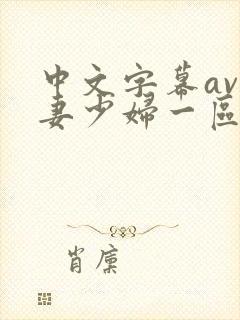 中文字幕av
妻少婦一區
肖廩